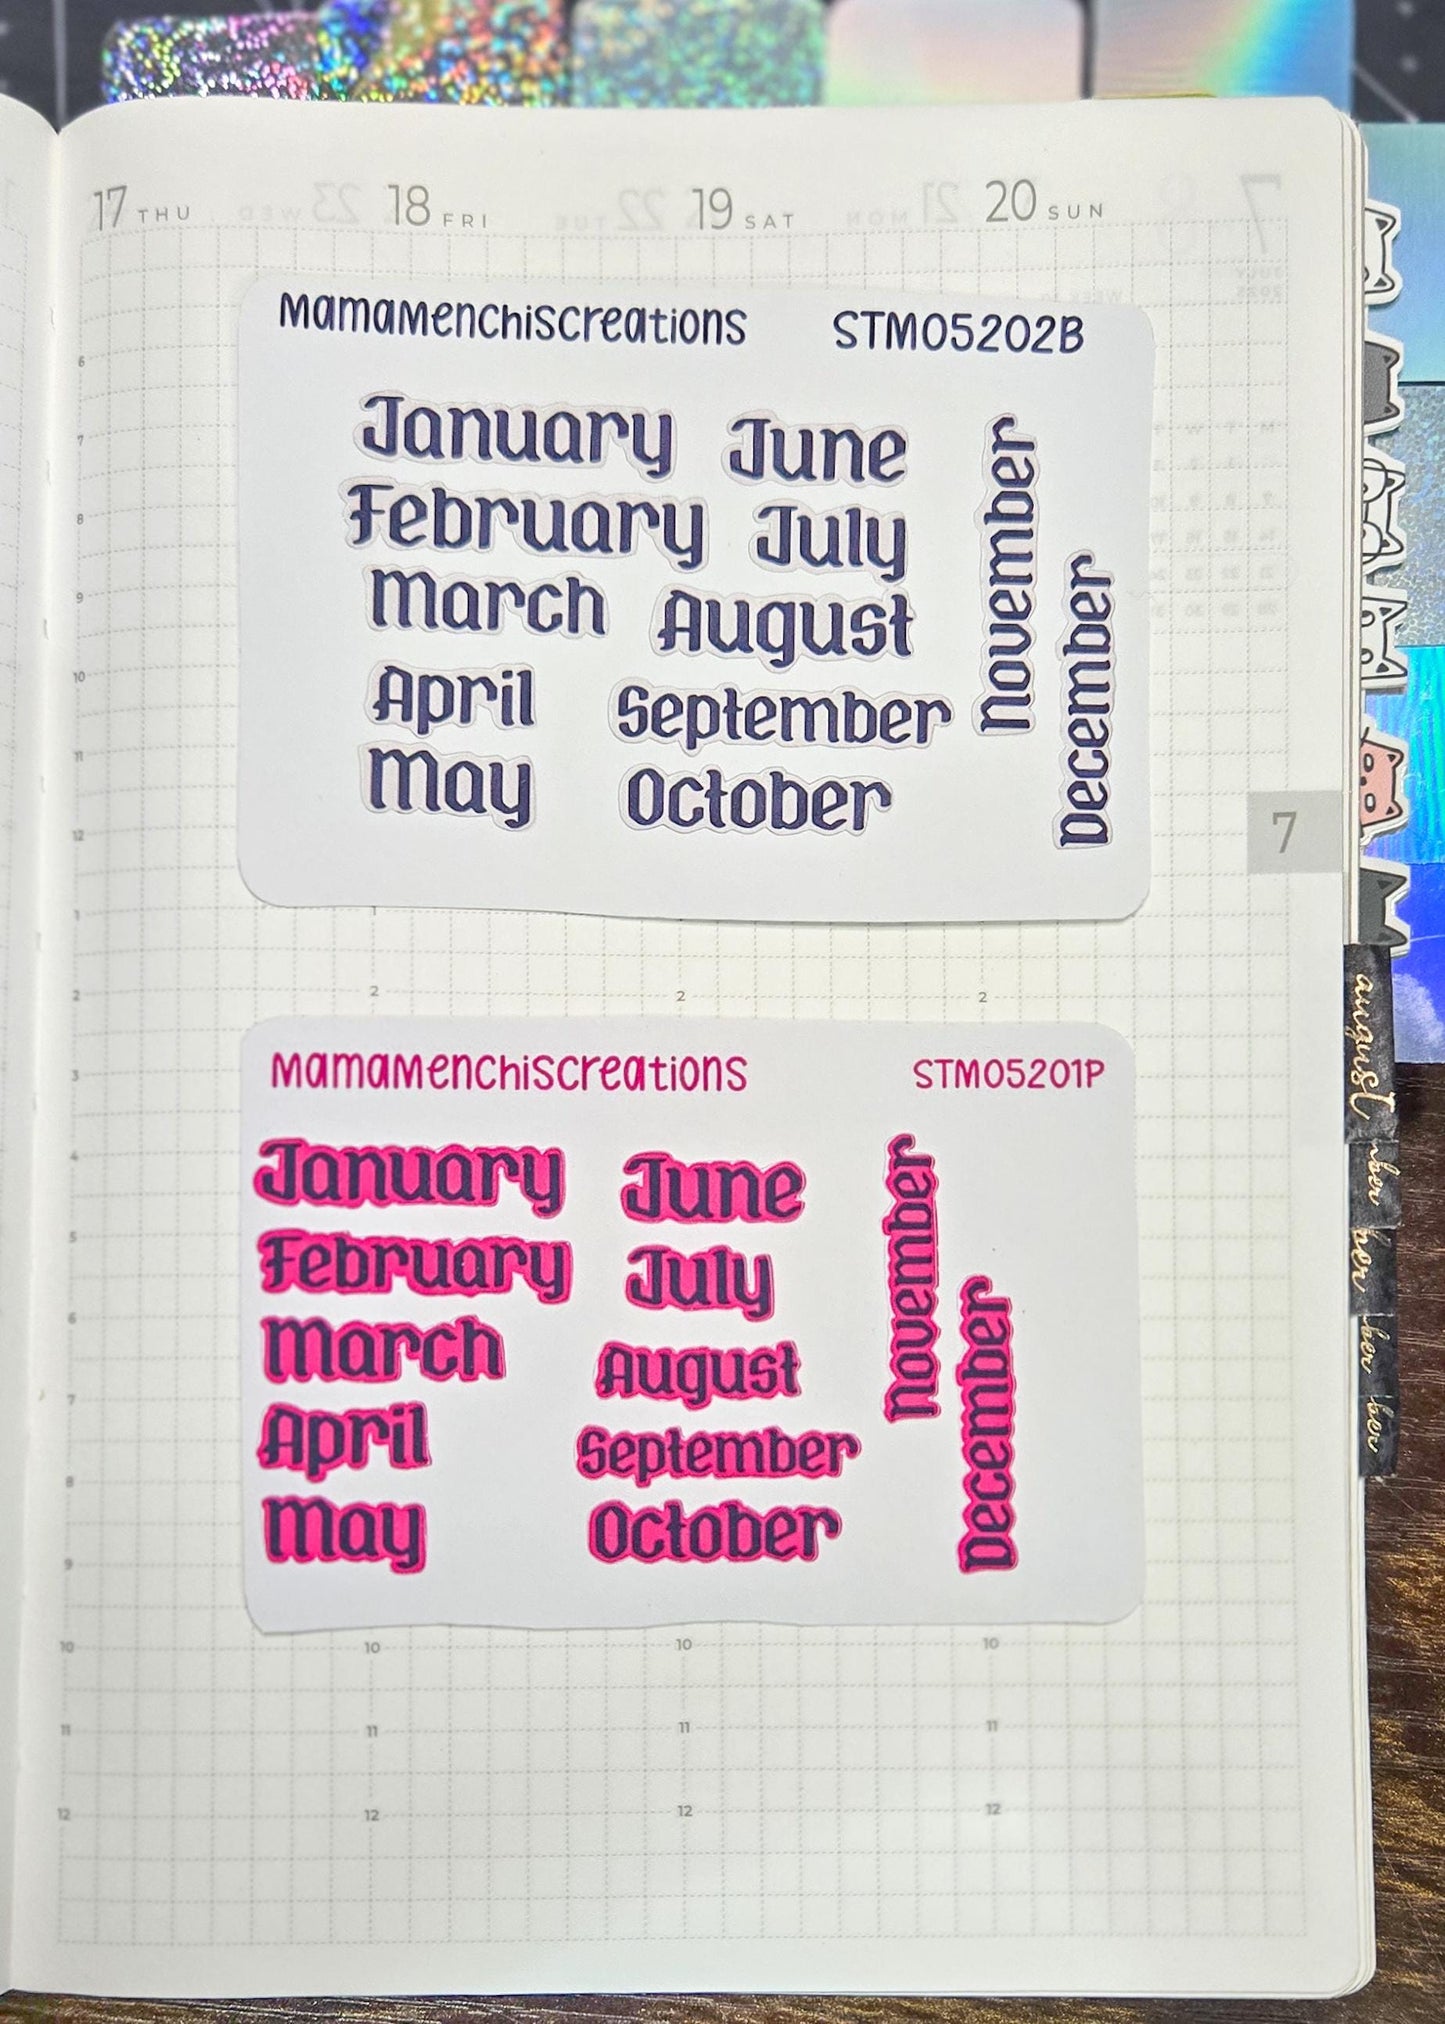 17 THU 18 FRI 19 SAT 20 SUN
MamaMenchiscreations STM05202B
January June
February July
March August
April September
May October
November
December
6
7
8
9
10
11
12
7
1
2 2 2 2
MamaMenchiscreations STM05201P
January June
February July
March August
April September
May October
November
December
3
4
5
6
7
8
9
10 10 10 10
11 11 11 11
12 12 12 12
august
mber
ber
ber
ber